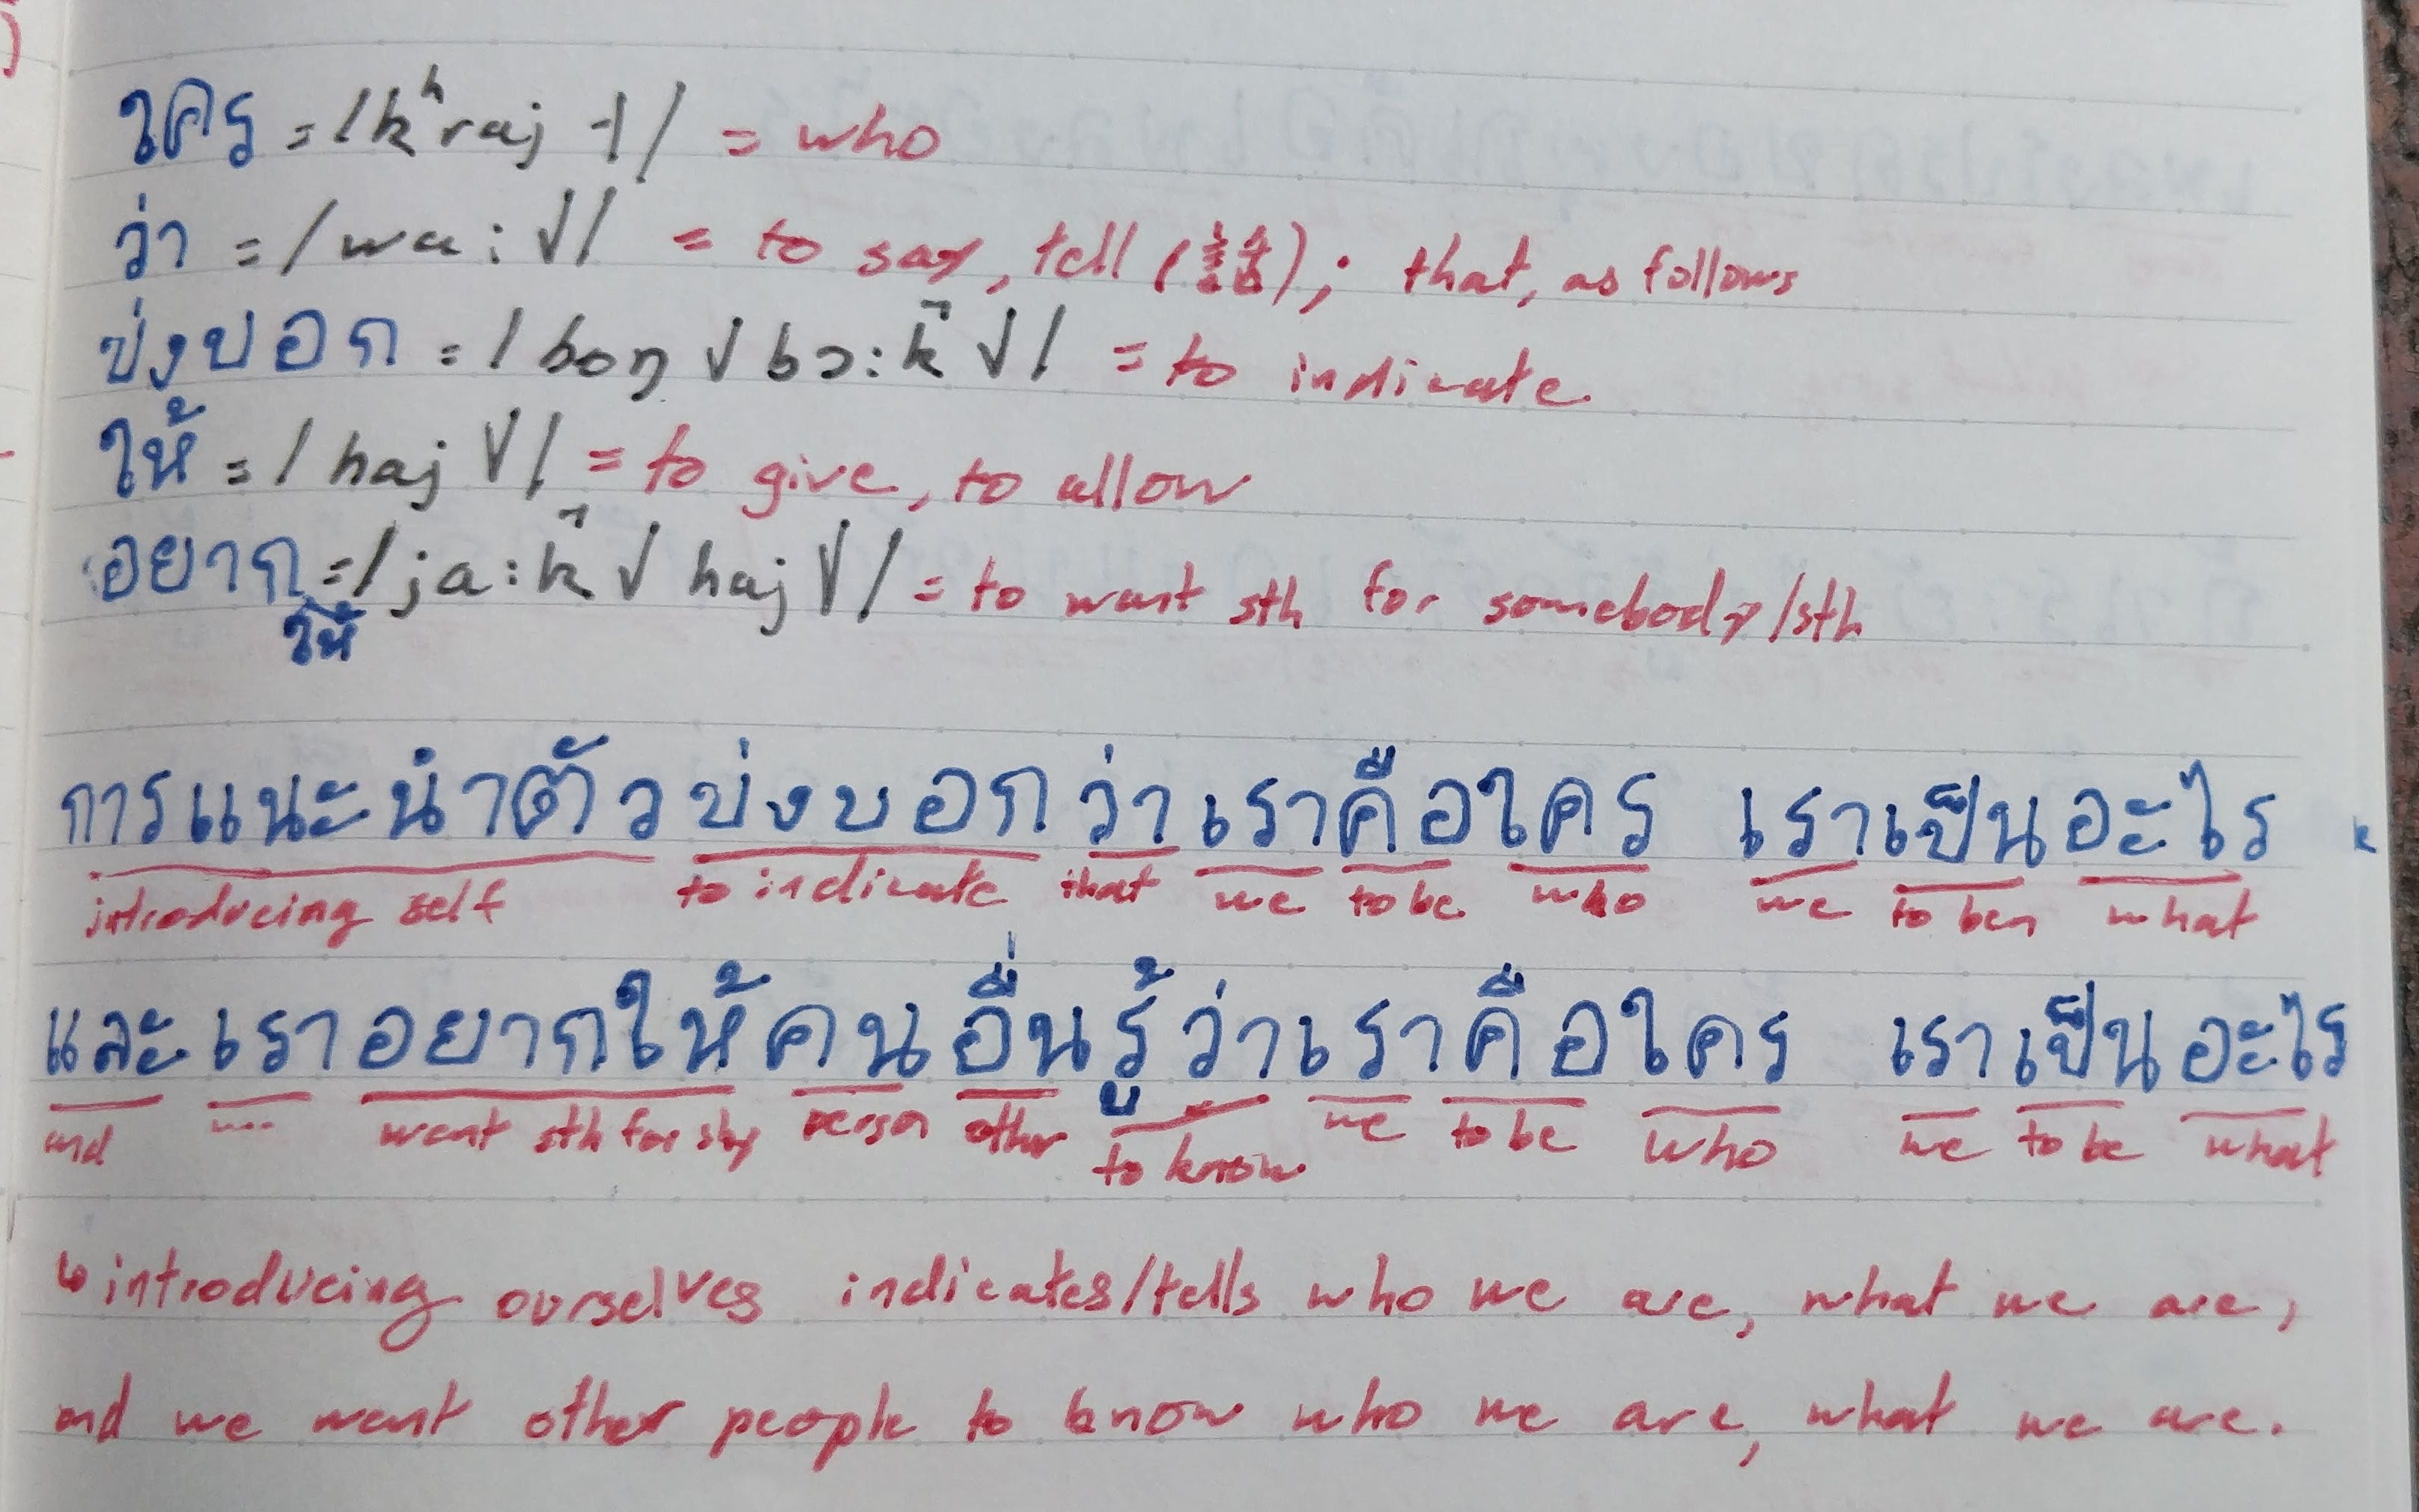 ใคร = /kʰraj ˧/ = who
ว่า = /wa: √/ = to say, tell (話); that, as follows
บ่งบอก = /boŋ √ bɔ:k̚ √/ = to indicate
ให้ = /haj V/ = to give, to allow
อยาก = /ja:k̚ √ haj V/ = to want sth for somebody/sth
ให้
การแนะนำตัวบ่งบอกว่าเราคือใคร เราเป็นอะไร
introducing self to indicate that we to be who we to be what
และเราอยากให้คนอื่นรู้ว่าเราคือใคร เราเป็นอะไร
and we want sth for sby person other to know we to be who we to be what
↳ introducing ourselves indicates/tells who we are, what we are,
and we want other people to know who we are, what we are.